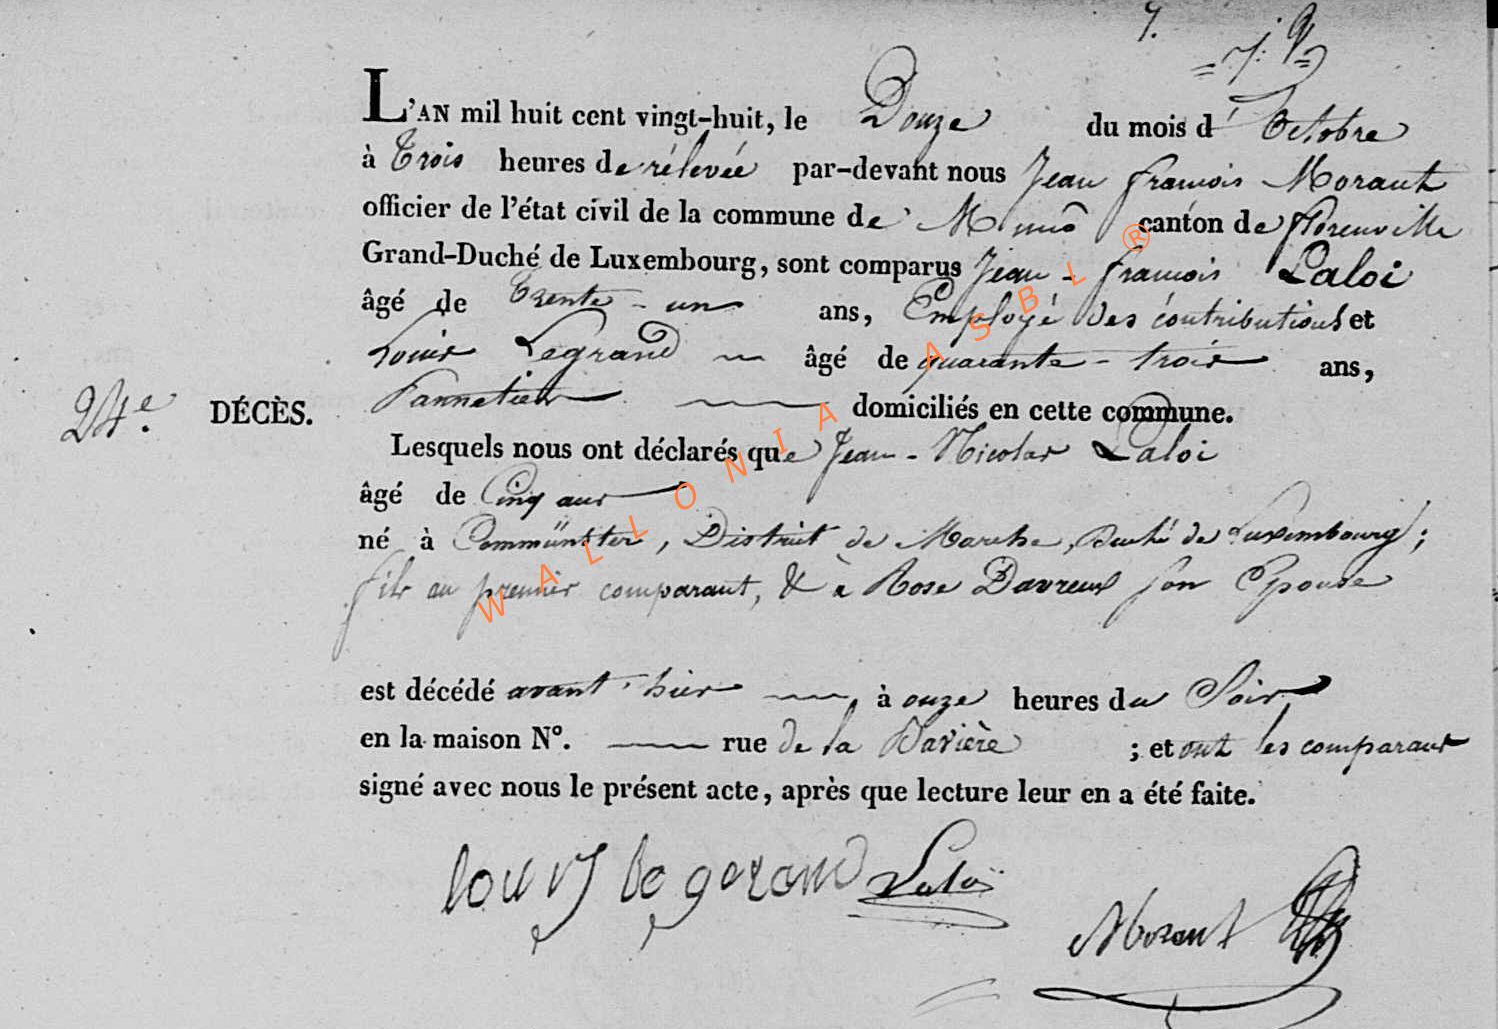 7.
L'AN mil huit cent vingt-huit, le Douze du mois d'Octobre
à Trois heures de rélevée par-devant nous Jean françois Moraux
officier de l'état civil de la commune de Muno canton de florenville
Grand-Duché de Luxembourg, sont comparus Jean-françois Laloi
âgé de Trente-un ans, Employé des contributions et
Louis Legrand âgé de quarante-trois ans,
domiciliés en cette commune.
24e. DÉCÈS.
Lesquels nous ont déclarés que Jean-Nicolas Laloi
âgé de Cinq ans
né à Commünster, District de Marche, Duché de Luxembourg;
fils au premier comparant, & à Rose Davreux son Epouse
est décédé avant-hier à onze heures du Soir
en la maison N°. rue de la ; et ont les comparant
signé avec nous le présent acte, après que lecture leur en a été faite.
Laloi
WALLONIA ASBL ®